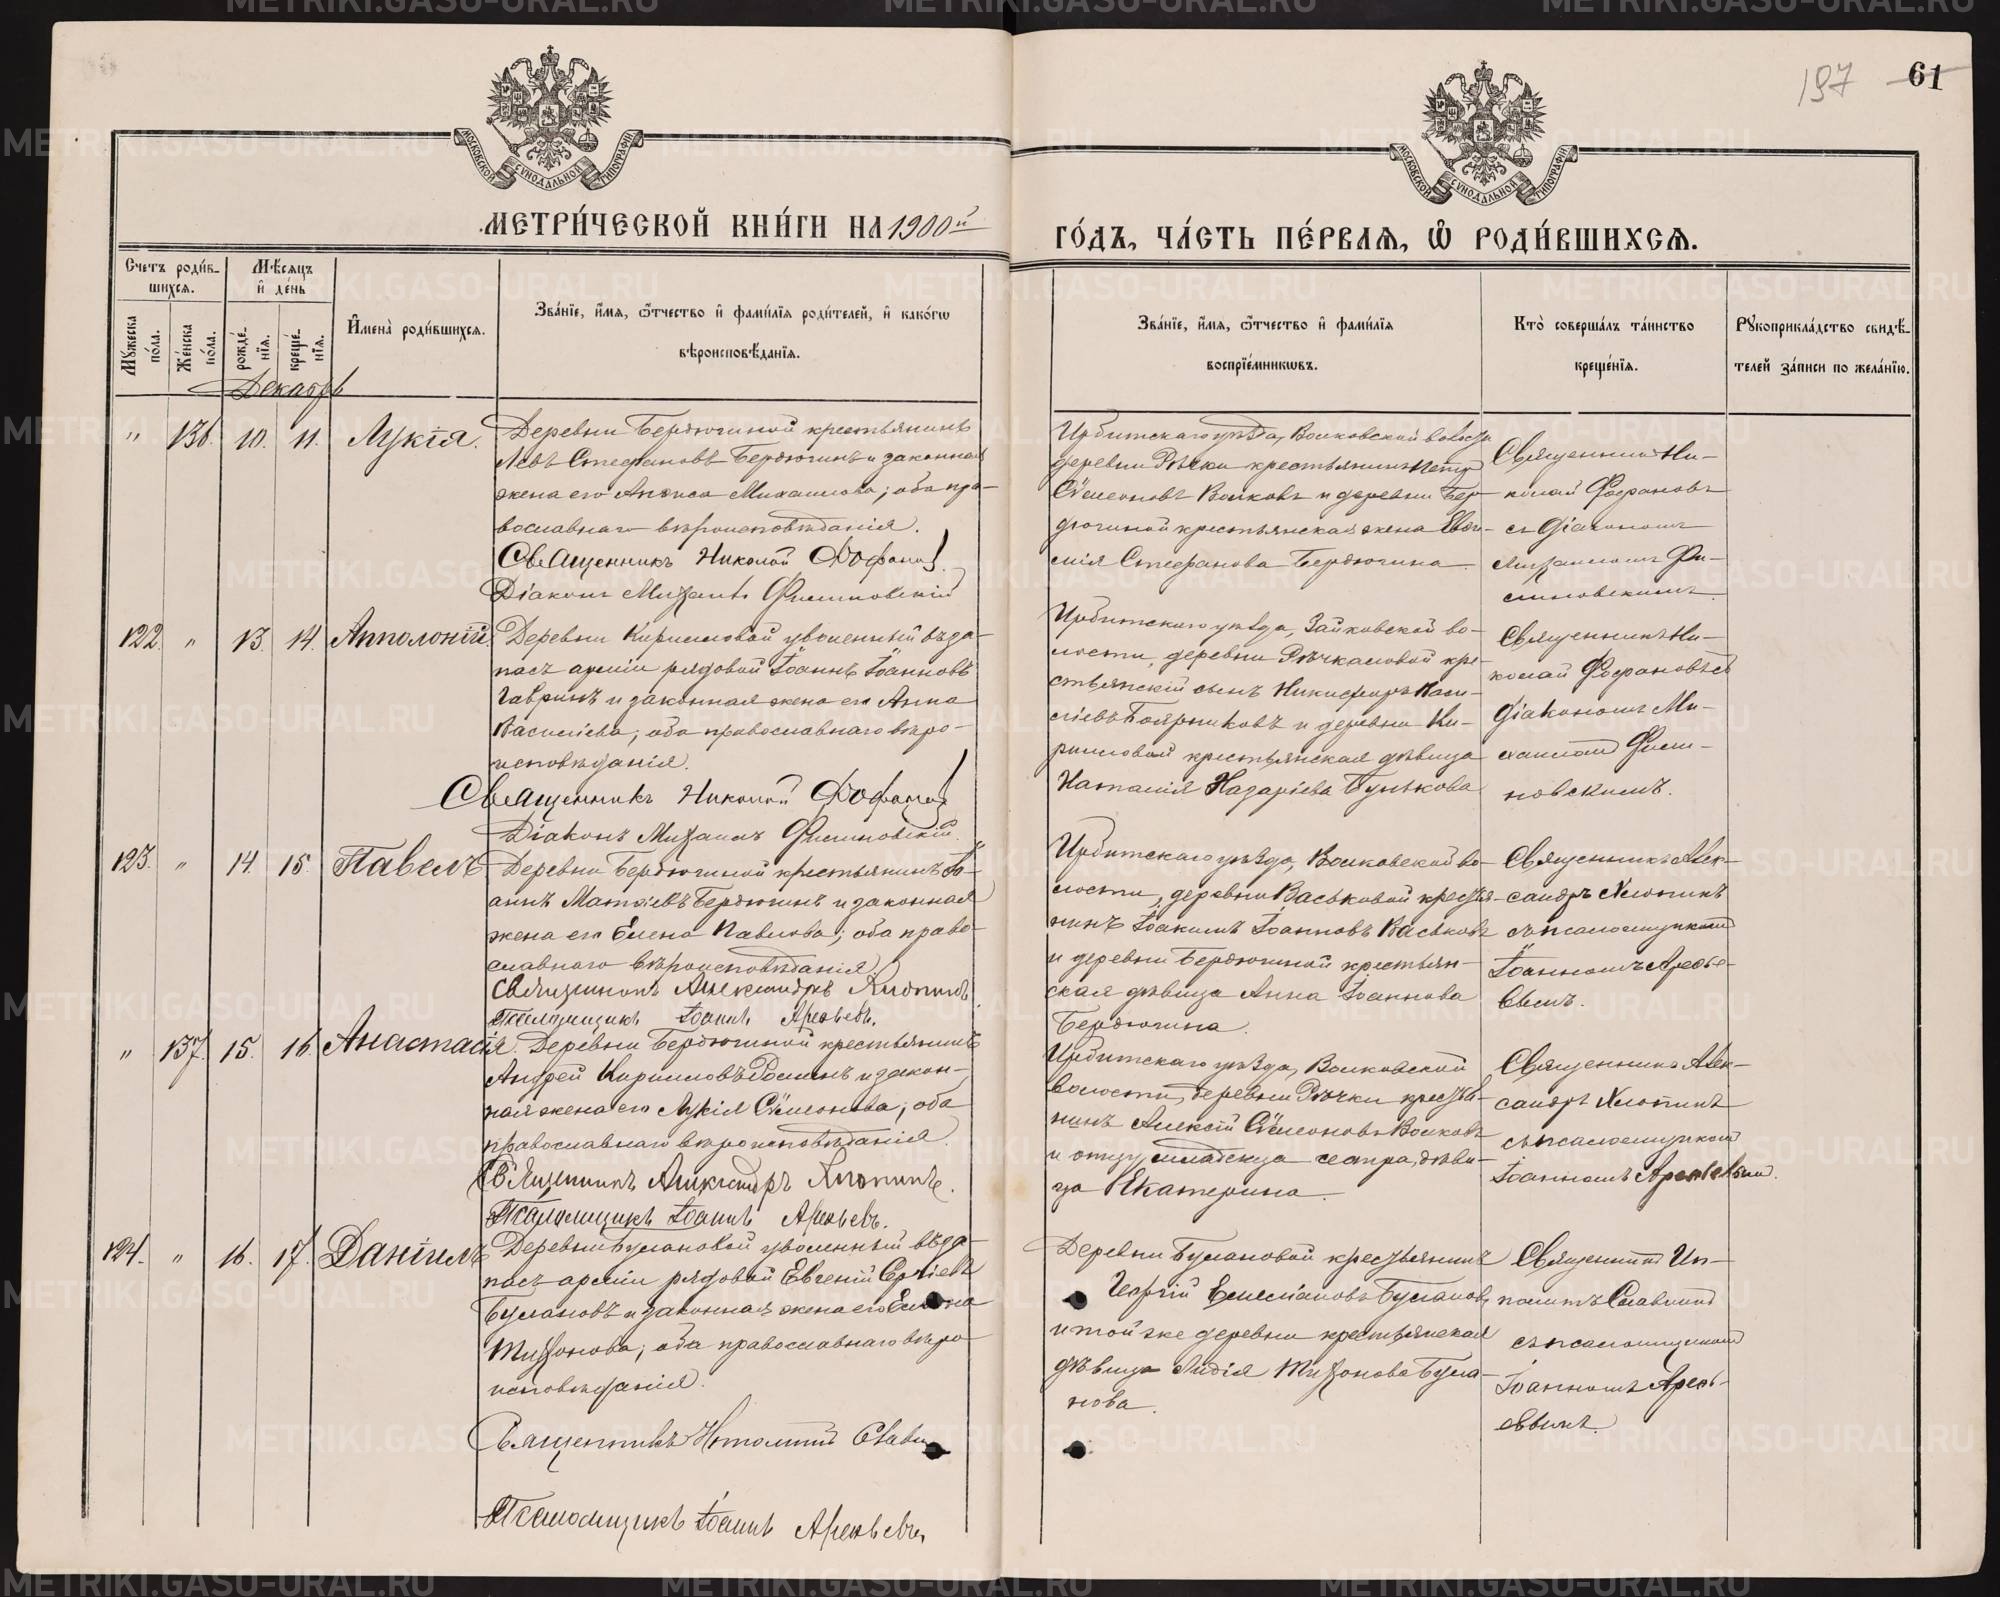 197 61
МОСКОВСКОЙ СѴНОДАЛЬНОЙ ТИПОГРАФІИ
МОСКОВСКОЙ СѴНОДАЛЬНОЙ ТИПОГРАФІИ
МЕТРИ́ЧЕСКОЙ КНИ́ГИ НА 1900й
ГО́ДЪ, ЧА́СТЬ ПЕ́РВАѦ, Ѡ҆ РОДИ́ВШИХСѦ.
Счетъ роди́в-
шихсѧ.
Мѣсѧцъ
и҆ де́нь
Мꙋжеска
по́ла.
Же́нска
по́ла.
рожде́-
нїѧ.
креще́-
нїѧ.
И҆мена̀ роди́вшихсѧ.
Зва́нїе, и҆́мѧ, ѻ҆́тчество и҆ фами́лїѧ роди́телей, и҆ како́гѡ
вѣроисповѣ́данїѧ.
Зва́нїе, и҆́мѧ, ѻ҆́тчество и҆ фами́лїѧ
воспрїе́мникѡвъ.
Кто̀ соверша́лъ та́инство
креще́нїѧ.
Рꙋкоприкла́дство свидѣ́-
телей за́писи по жела́нїю.
Декабрь
" 136. 10. 11. Лукія.
Деревни Бердюгиной крестьянинъ
Левъ Стефановъ Бердюгинъ и законная
жена его Анѳиса Михаилова; оба пра-
вославнаго вѣроисповѣданія.
Священникъ Николай Фофановъ
Діаконъ Михаилъ Филиновскій
Ирбитскаго уѣзда, Волковской волости
деревни Рѣчки крестьянинъ Петр
Сѵмеоновъ Волковъ и деревни Бер-
дюгиной крестьянская жена Евѳи-
мія Стефанова Бердюгина.
Священник Ни-
колай Фофановъ
съ діакономъ
Михаиломъ Фи-
линовскимъ.
122. " 13. 14. Апполоній.
Деревни Кирилловой уволенный въ за-
пасъ арміи рядовой Іоаннъ Іоанновъ
Гавринъ и законная жена его Анна
Василіева; оба православнаго вѣро-
исповѣданія.
Священникъ Николай Фофановъ
Діаконъ Михаилъ Филиновскій.
Ирбитскаго уѣзда, Зайковской во-
лости, деревни Рѣчкаловой кре-
стьянскій сынъ Никифоръ Васи-
ліевъ Боярниковъ и деревни Ки-
рилловой крестьянская дѣвица
Наталія Назаріева Бунькова
Священникъ Ни-
колай Фофановъ съ
діакономъ Ми-
хаиломъ Фили-
новскимъ.
123. " 14. 15. Павелъ
Деревни Бердюгиной крестьянинъ Іо-
аннъ Матѳіевъ Бердюгинъ и законная
жена его Елена Павлова; оба право-
славнаго вѣроисповѣданія.
Священникъ Александръ Хлопинъ
Псаломщикъ Іоаннъ Арефьевъ.
Ирбитскаго уѣзда, Волковской во-
лости, деревни Васьковой крестья-
нинъ Іоакимъ Іоанновъ Васьковъ
и деревни Бердюгиной крестьян-
ская дѣвица Анна Іоаннова
Бердюгина.
Священникъ Алек-
сандръ Хлопинъ
съ псаломщикомъ
Іоанномъ Арефье-
вымъ.
" 137. 15. 16. Анастасія.
Деревни Бердюгиной крестьянинъ
Андрей Кирилловъ и закон-
ная жена его Лукія Сѵмеонова; оба
православнаго вѣроисповѣданія.
Священникъ Александръ Хлопинъ.
Псаломщикъ Іоаннъ Арефьевъ.
Ирбитскаго уѣзда, Волковской
волости, деревни Рѣчки крестья-
нинъ Алексій Сѵмеоновъ Волковъ
и отцу младенца сестра, дѣви-
ца Екатерина.
Священникъ Алек-
сандръ Хлопинъ
съ псаломщикомъ
Іоанномъ Арефьевым.
124. " 16. 17. Даніилъ
Деревни Булановой уволенный въ за-
пасъ арміи рядовой Евгеній Сергіевъ
Булановъ и законная жена его Елена
Тихонова; оба православнаго вѣро
исповѣданія.
Священникъ Ипполитъ Слав
Псаломщикъ Іоаннъ Арефьевъ.
Деревни Булановой крестьянинъ
Георгій Емеліановъ Буланов
и той же деревни крестьянская
дѣвица Лидія Тихонова Була-
нова.
Священник Ип-
политъ Славнин
съ псаломщикомъ
Іоанномъ Арефь-
евымъ.
METRIKI.GASO-URAL.RU